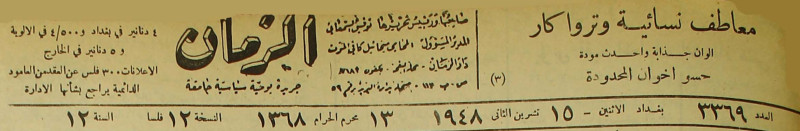 معاطف نسائية وترواكار
الوان جذابة واحدث مودة
حسو اخوان المحدودة
(٣)
صاحبها ورئيس تحريرها توفيق السمعاني
المدير المسؤول: المحامي ميخائيل
الزمان
جريدة يومية سياسية جامعة
٤ دنانير في بغداد و ٤/٥٠٠ في الالوية
و ٥ دنانير في الخارج
الاعلانات ٣٠٠ فلس عن العقد من العامود
الدائمية يراجع بشأنها الادارة
العدد ٣٣٦٩ بغداد الاثنين - ١٥ تشرين الثاني ١٩٤٨ ١٣ محرم الحرام ١٣٦٨ النسخة ١٢ فلسا السنة ١٢